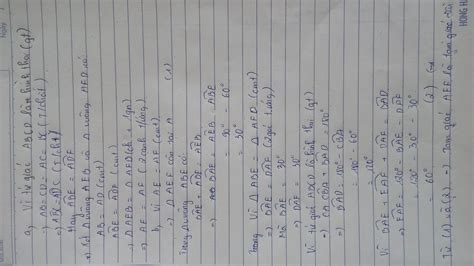 a, Vì tứ giác ABCD là hình thoi (gt)
=> AB = CD = AC = DC (T/chất)
=> ABC = ADC (T/chất)
Hay ABE = ADF
Xét Δ vuông AEB và Δ vuông AFD có:
AB = AD (cmt)
ABE = ADF (cmt)
=> Δ AEB = Δ AFD (ch - gn)
=> AE = AF (2 cạnh t/ứng)
b, Vì AE = AF (cmt)
=> Δ AEF cân tại A (1)
Trong Δ vuông ABE có:
BAE + ABE = AEB
=> BAE = AEB - ABE
= 90° - 60°
= 30°
Vì Δ ABE = Δ AFD (cmt)
=> BAE = DAF (2 góc t/ứng)
Mà BAE = 30°
=> DAF = 30°
Vì tứ giác ABCD là hình thoi (gt)
=> CBA + BAD = 180°
=> BAD = 180° - CBA
= 180° - 60°
= 120°
Vì BAE + EAF + DAF = BAD
=> EAF = BAD - BAE - DAF
= 120° - 30° - 30°
= 60° (2)
Từ (1) và (2) => Tam giác AEF là tam giác đều